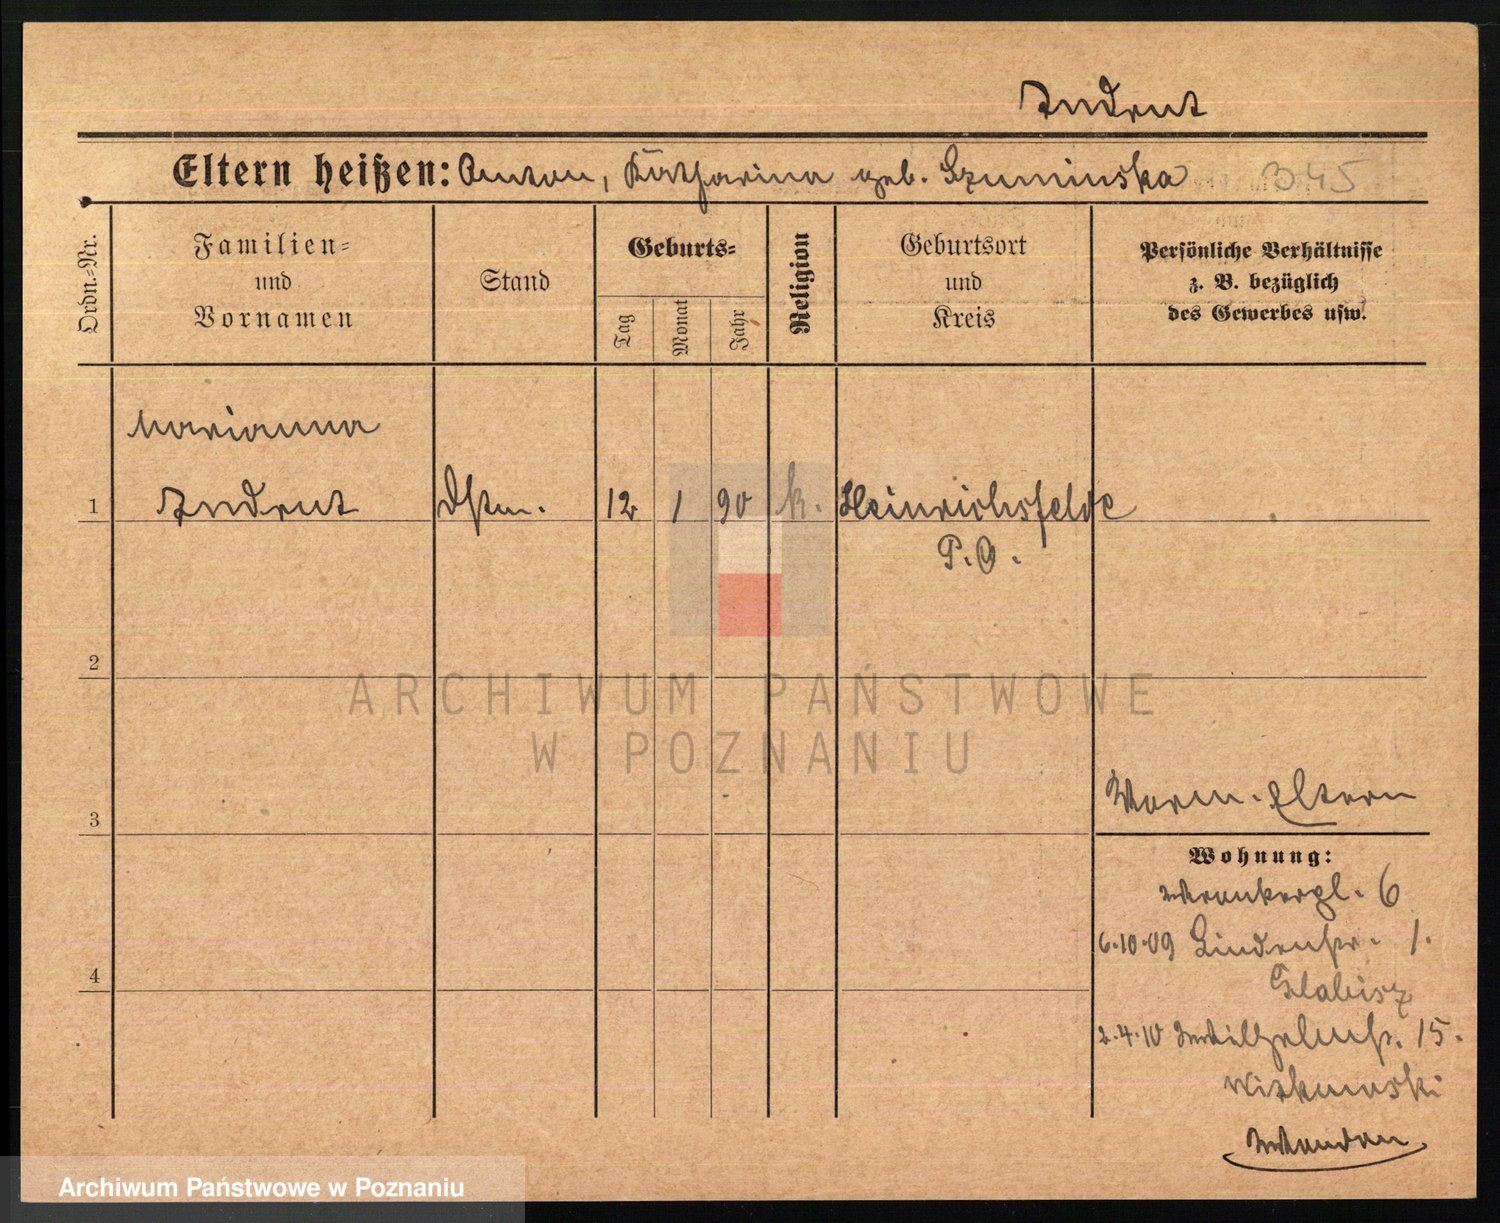 Indrut
Eltern heißen: Anton, Katharina geb. Szuminska 345
Ordn.=Nr.
Familien=
und
Vornamen
Stand
Geburts=
Tag
Monat
Jahr
Religion
Geburtsort
und
Kreis
Persönliche Verhältnisse
z. B. bezüglich
des Gewerbes usw.
Marianna
1 Indrut Dstm. 12 1 90 k. Heinrichsfelde
P. O.
2
ARCHIWUM PAŃSTWOWE
W POZNANIU
Eltern
3
Wohnung:
6
4
6.10.09 Lindenstr. 1.
Glabisz
2.4.10 Wilhelmst. 15.
Witkowski
Archiwum Państwowe w Poznaniu